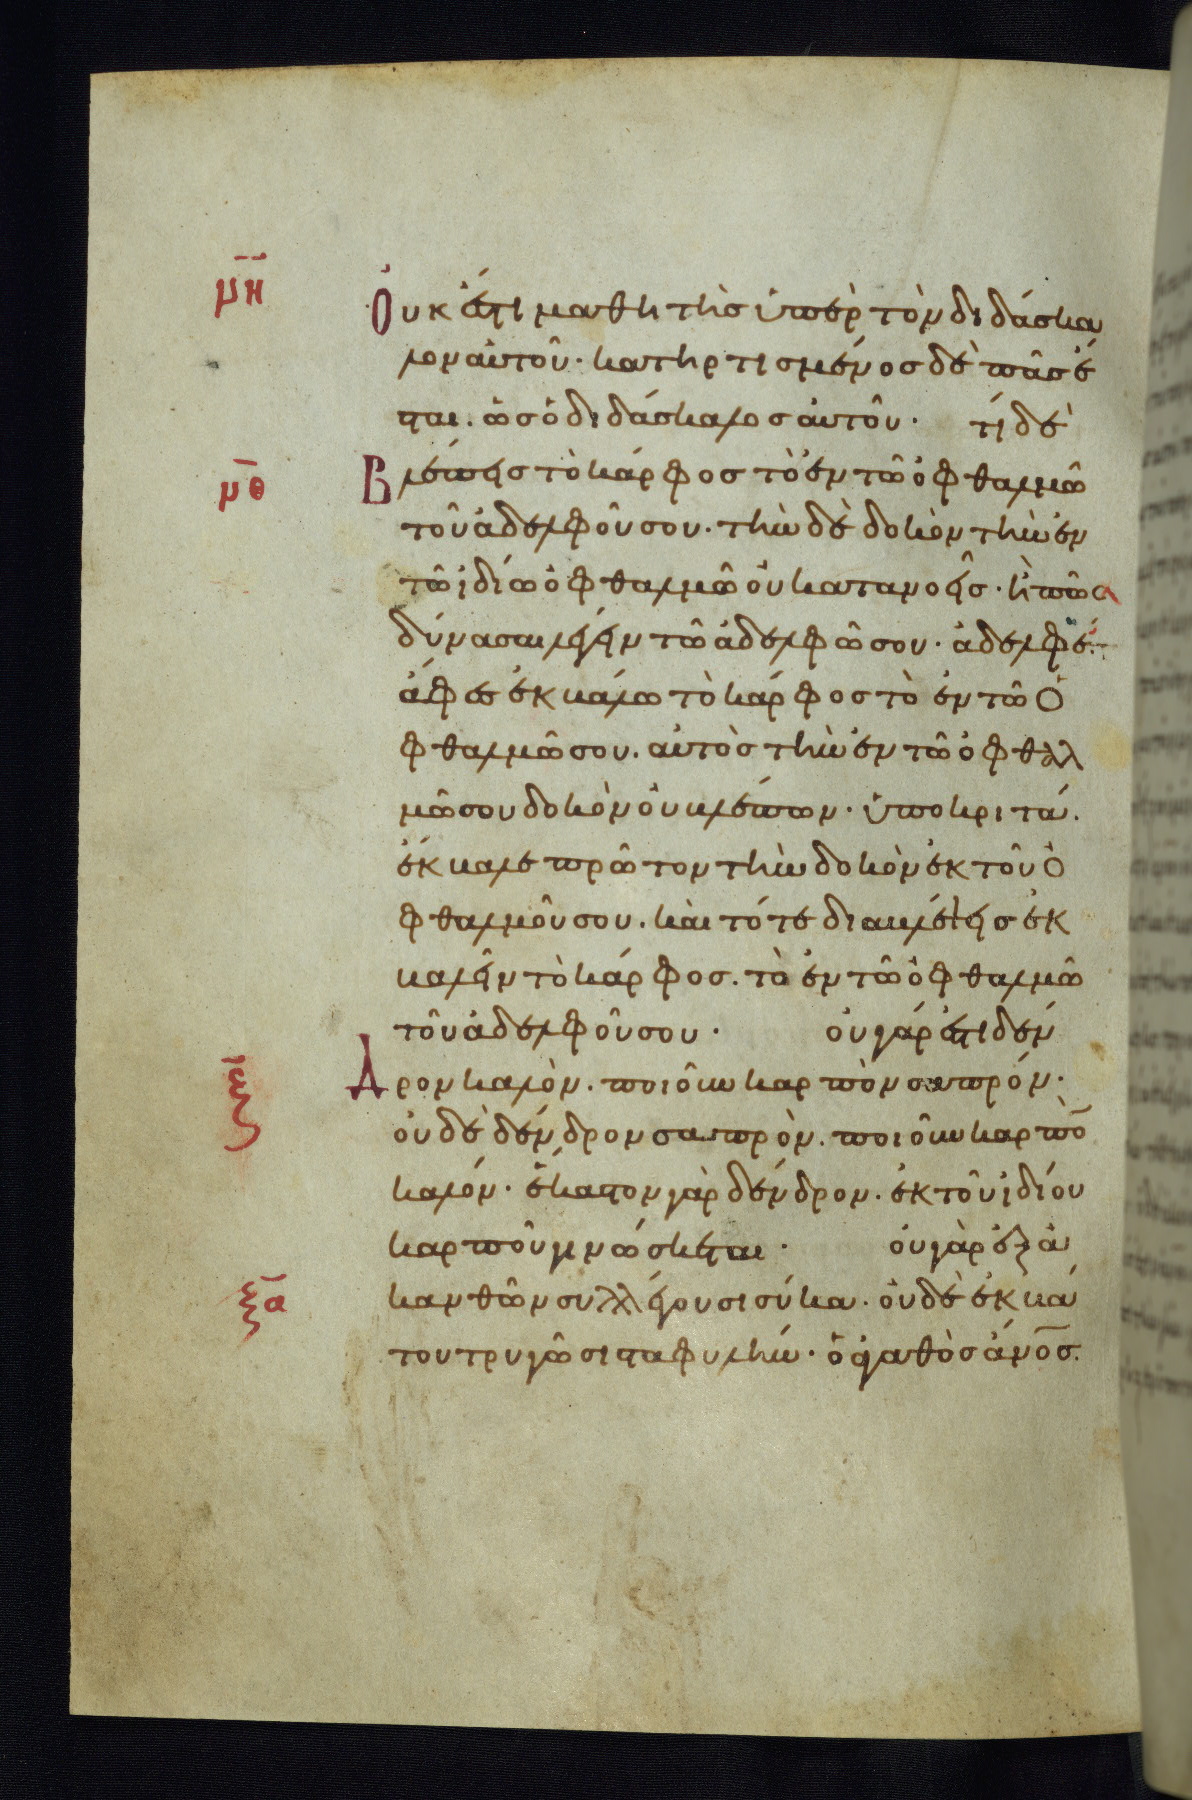 μη
Οὐκ ἔστι μαθητὴς ὑπὲρ τὸν διδάσκα
λον αὐτοῦ· κατηρτισμένος δὲ πᾶς ἔ
σται. ὡς ὁ διδάσκαλος αὐτοῦ· τί δὲ
μθ
Βλέπεις τὸ κάρφος τὸ ἐν τῶ ὀφθαλμῶ
τοῦ ἀδελφοῦ σου. τὴν δὲ δοκὸν τὴν ἐν
τῶ ἰδίω ὀφθαλμῶ οὐ κατανοεῖς· ἢ πῶς
δύνασαι λέγειν τῶ ἀδελφῶ σου· ἀδελφέ.
ἄφες ἐκβάλω τὸ κάρφος τὸ ἐν τῶ ὀ
φθαλμῶ σου. αὐτὸς τὴν ἐν τῶ ὀφθαλ
μῶ σου δοκὸν οὐ βλέπων· ὑποκριτά.
ἔκβαλε πρῶτον τὴν δοκὸν ἐκ τοῦ ὀ
φθαλμοῦ σου. καὶ τότε διαβλέψεις ἐκ
βαλεῖν τὸ κάρφος. τὸ ἐν τῶ ὀφθαλμῶ
τοῦ ἀδελφοῦ σου· οὐ γάρ ἐστι δέν
ξ
Δρον καλὸν. ποιοῦν καρπὸν σαπρόν·
οὐδὲ δένδρον σαπρὸν. ποιοῦν καρπὸ̄
καλόν· ἕκαστον γὰρ δένδρον. ἐκ τοῦ ἰδίου
καρποῦ γινώσκεται· οὐ γὰρ ἐξ ἀ
ξα
κανθῶν συλλέγουσι σύκα· οὐδὲ ἐκ βά
του τρυγῶσι σταφυλήν· ὁ ἀγαθὸς ἄνο̅ς.